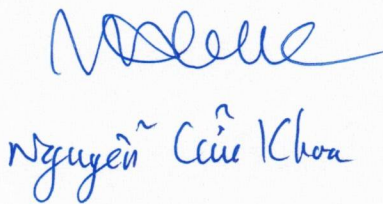 Nguyễn Cửu Khoa